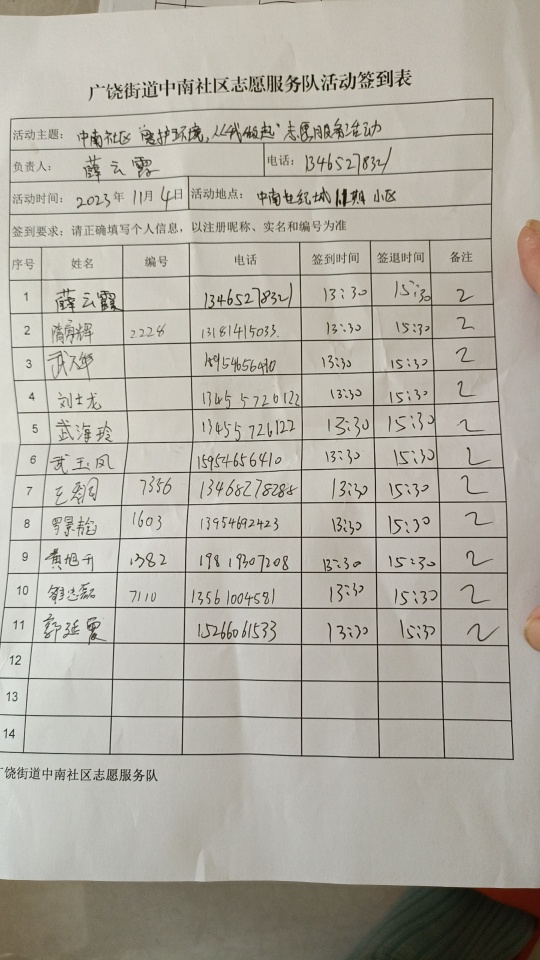 广饶街道中南社区志愿服务队活动签到表
活动主题： 中南社区“爱护环境，从我做起”志愿服务活动
负责人： 薛云霞 电话：13465278321
活动时间： 2023年 11月 4日 活动地点： 中南世纪城 期 小区
签到要求：请正确填写个人信息，以注册昵称、实名和编号为准
序号 姓名 编号 电话 签到时间 签退时间 备注
1 薛云霞 13465278321 13:30 15:30 2
2 隋勇辉 2228 13181415033 13:30 15:30 2
3 15954656410 13:30 15:30 2
4 刘士龙 13455726122 13:30 15:30 2
5 武海玲 13455726122 13:30 15:30 2
6 武玉凤 15954656410 13:30 15:30 2
7 7356 13468278288 13:30 15:30 2
8 1603 13954692423 13:30 15:30 2
9 黄旭千 1382 19819307208 13:30 15:30 2
10 7110 13561004581 13:30 15:30 2
11 郭延霞 15266061533 13:30 15:30 2
12
13
14
广饶街道中南社区志愿服务队